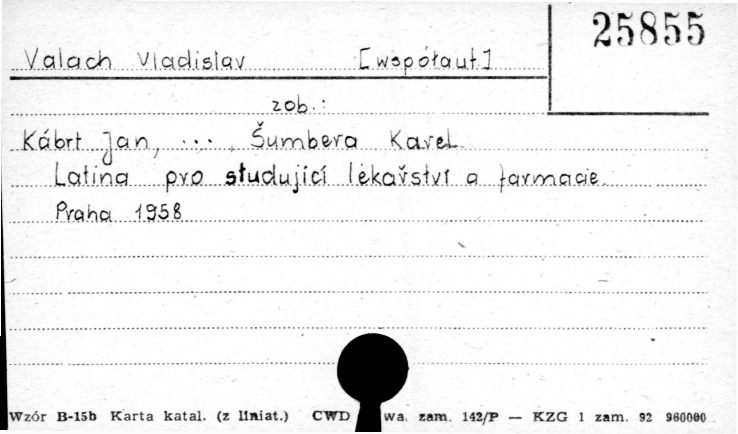 25855
Valach Vladislav [współaut.]
zob.:
Kábrt Jan, ... , Šumbera Karel
Latina pro studující lékařství a farmacie.
Praha 1958
Wzór B-15b Karta katal. (z liniat.) CWD wa. zam. 142/P — KZG 1 zam. 92 960000